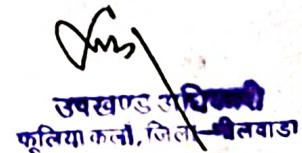 उपखण्ड अधिकारी
फूलिया कलां, जिला-भीलवाडा